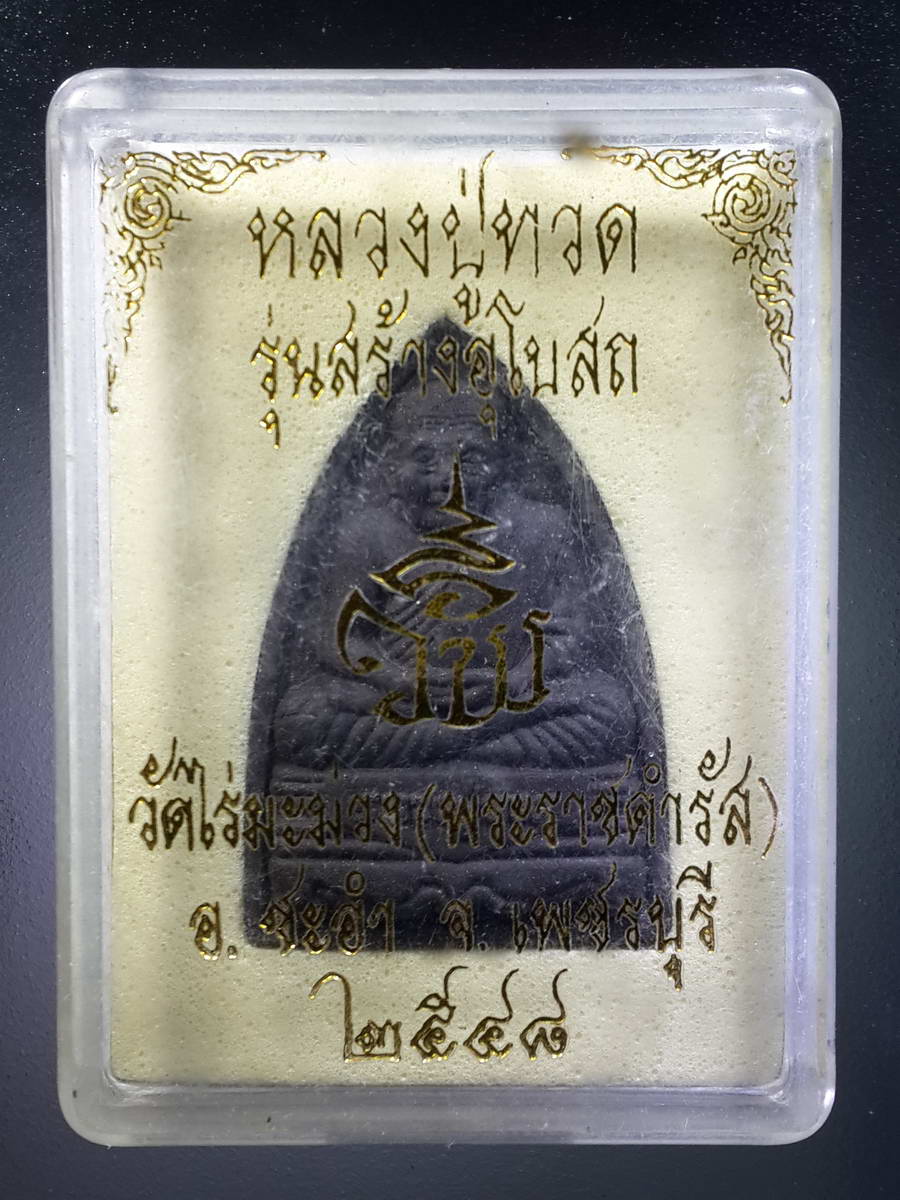 หลวงปู่ทวด
รุ่นสร้างอุโบสถ
วัดไร่มะม่วง (พระราชดำรัส)
อ. ชะอำ จ. เพชรบุรี
๒๕๔๘